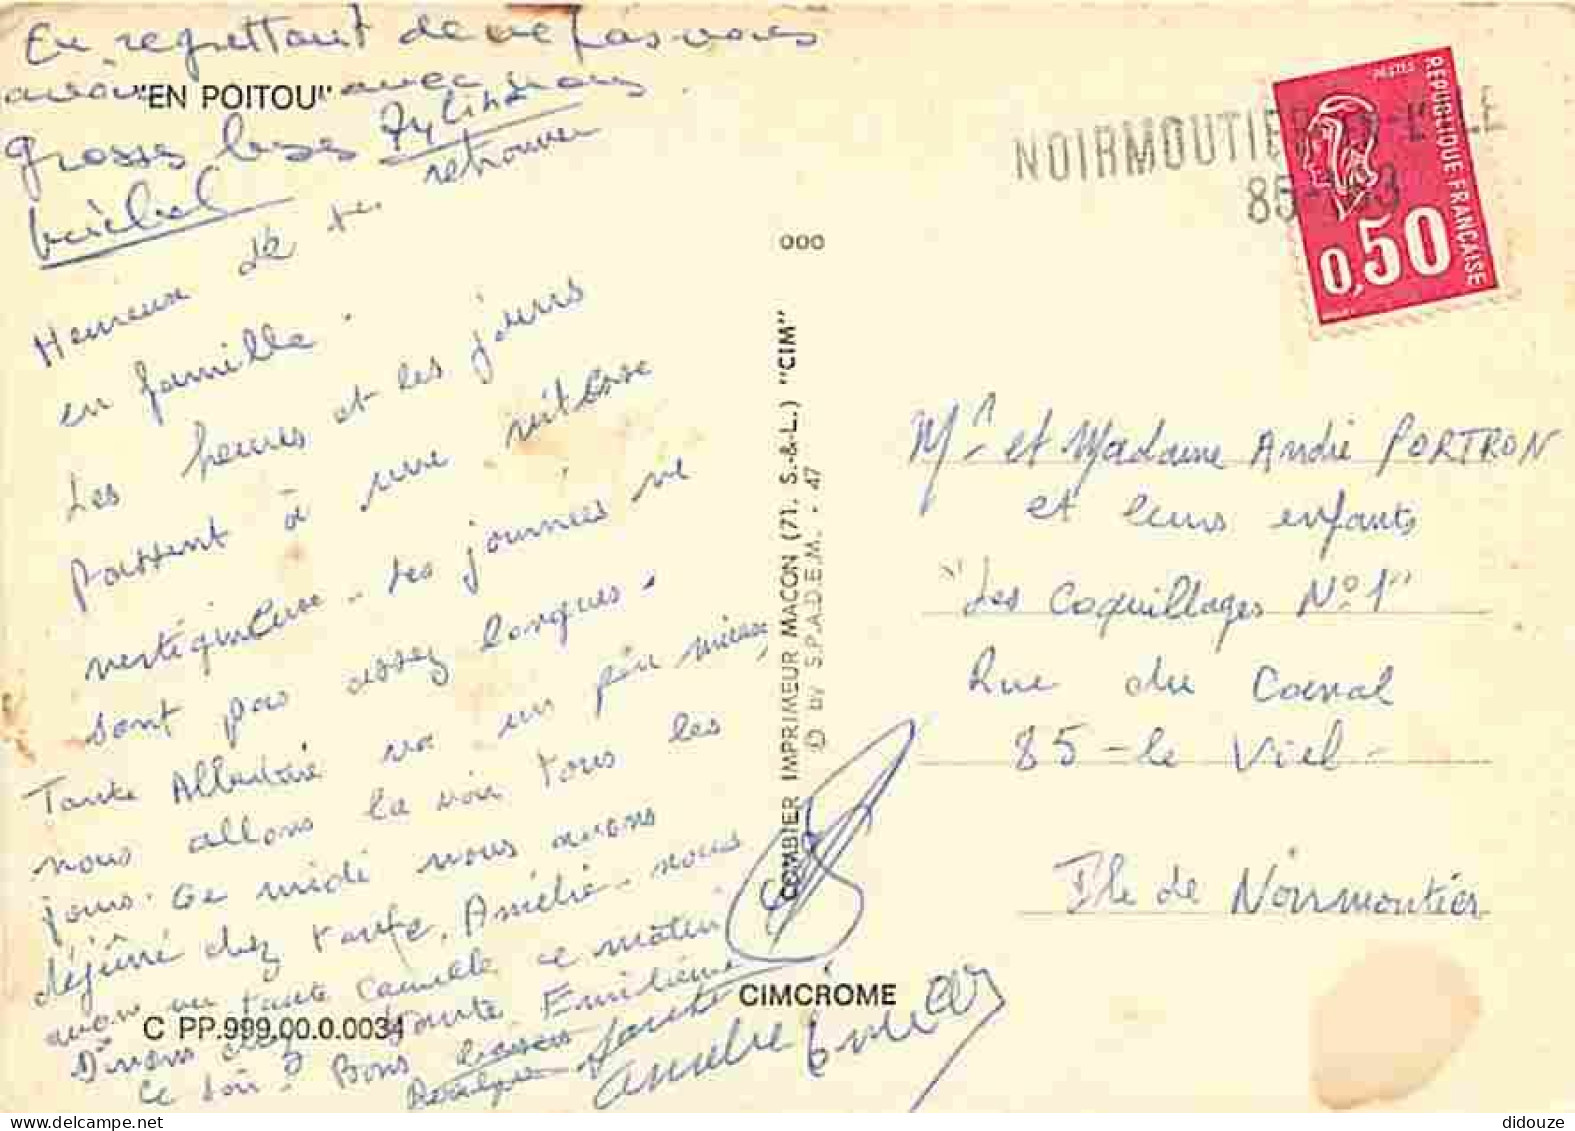 En regrettant de ne pas vous
avoir avec nous
"EN POITOU"
grosses bises
Michel
Heureux de retrouver
en famille.
Les heures et les jours
passent à une vitesse
vertigineuse. Les journées ne
sont pas assez longues.
Tante va un peu mieux
nous allons la voir tous les
jours. Ce midi nous avons
déjeûné chez tante Amélie. nous
avons vu tante Camille ce matin
Dînons chez tante Emilienne
ce soir. Bons baisers
C PP.999.00.0.0034
000
COMBIER IMPRIMEUR MACON (71. S.-&-L.) "CIM"
© by S.P.A.D.E.M. - 47
CIMCROME
NOIRMOUTIER
85
POSTES
REPUBLIQUE FRANÇAISE
0,50
Mr et Madame André PORTRON
et leurs enfants
"Les Coquillages No 1"
Rue du Canal
85 - le Viel -
Ile de Noirmoutier
didouze